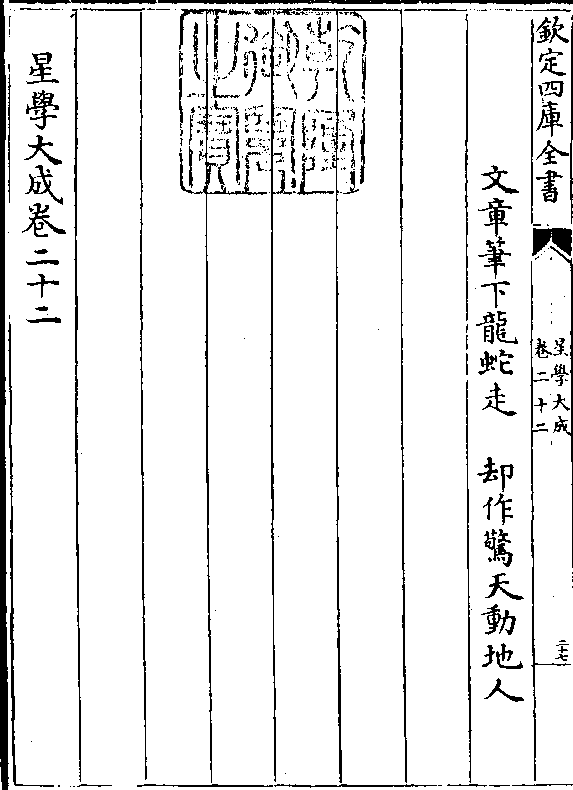 欽定四庫全書
星學大成
卷二十二
二十七
文章筆下龍蛇走　却作驚天動地人
乾隆御覽之寶
星學大成卷二十二